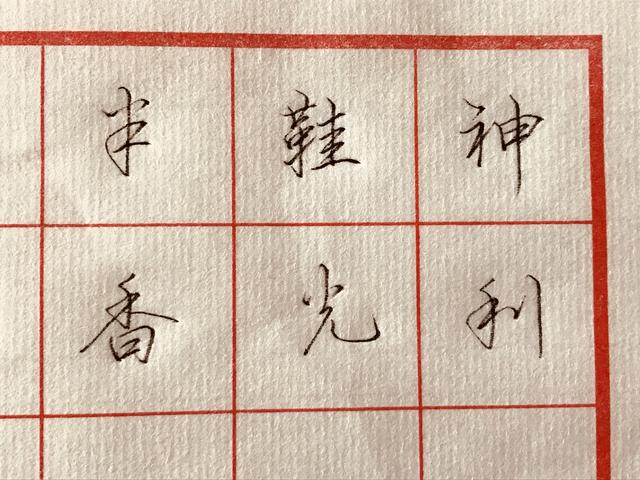 神利
鞋光
米香